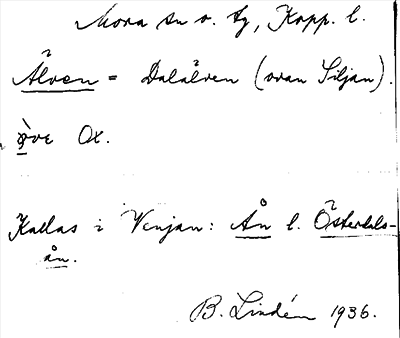 Mora sn o. tg, Kopp. l.
Älven = Dalälven (ovan Siljan).
ove Ox.
Kallas i Venjan: Ån l. Österdals-
ån.
B. Lindén 1936.